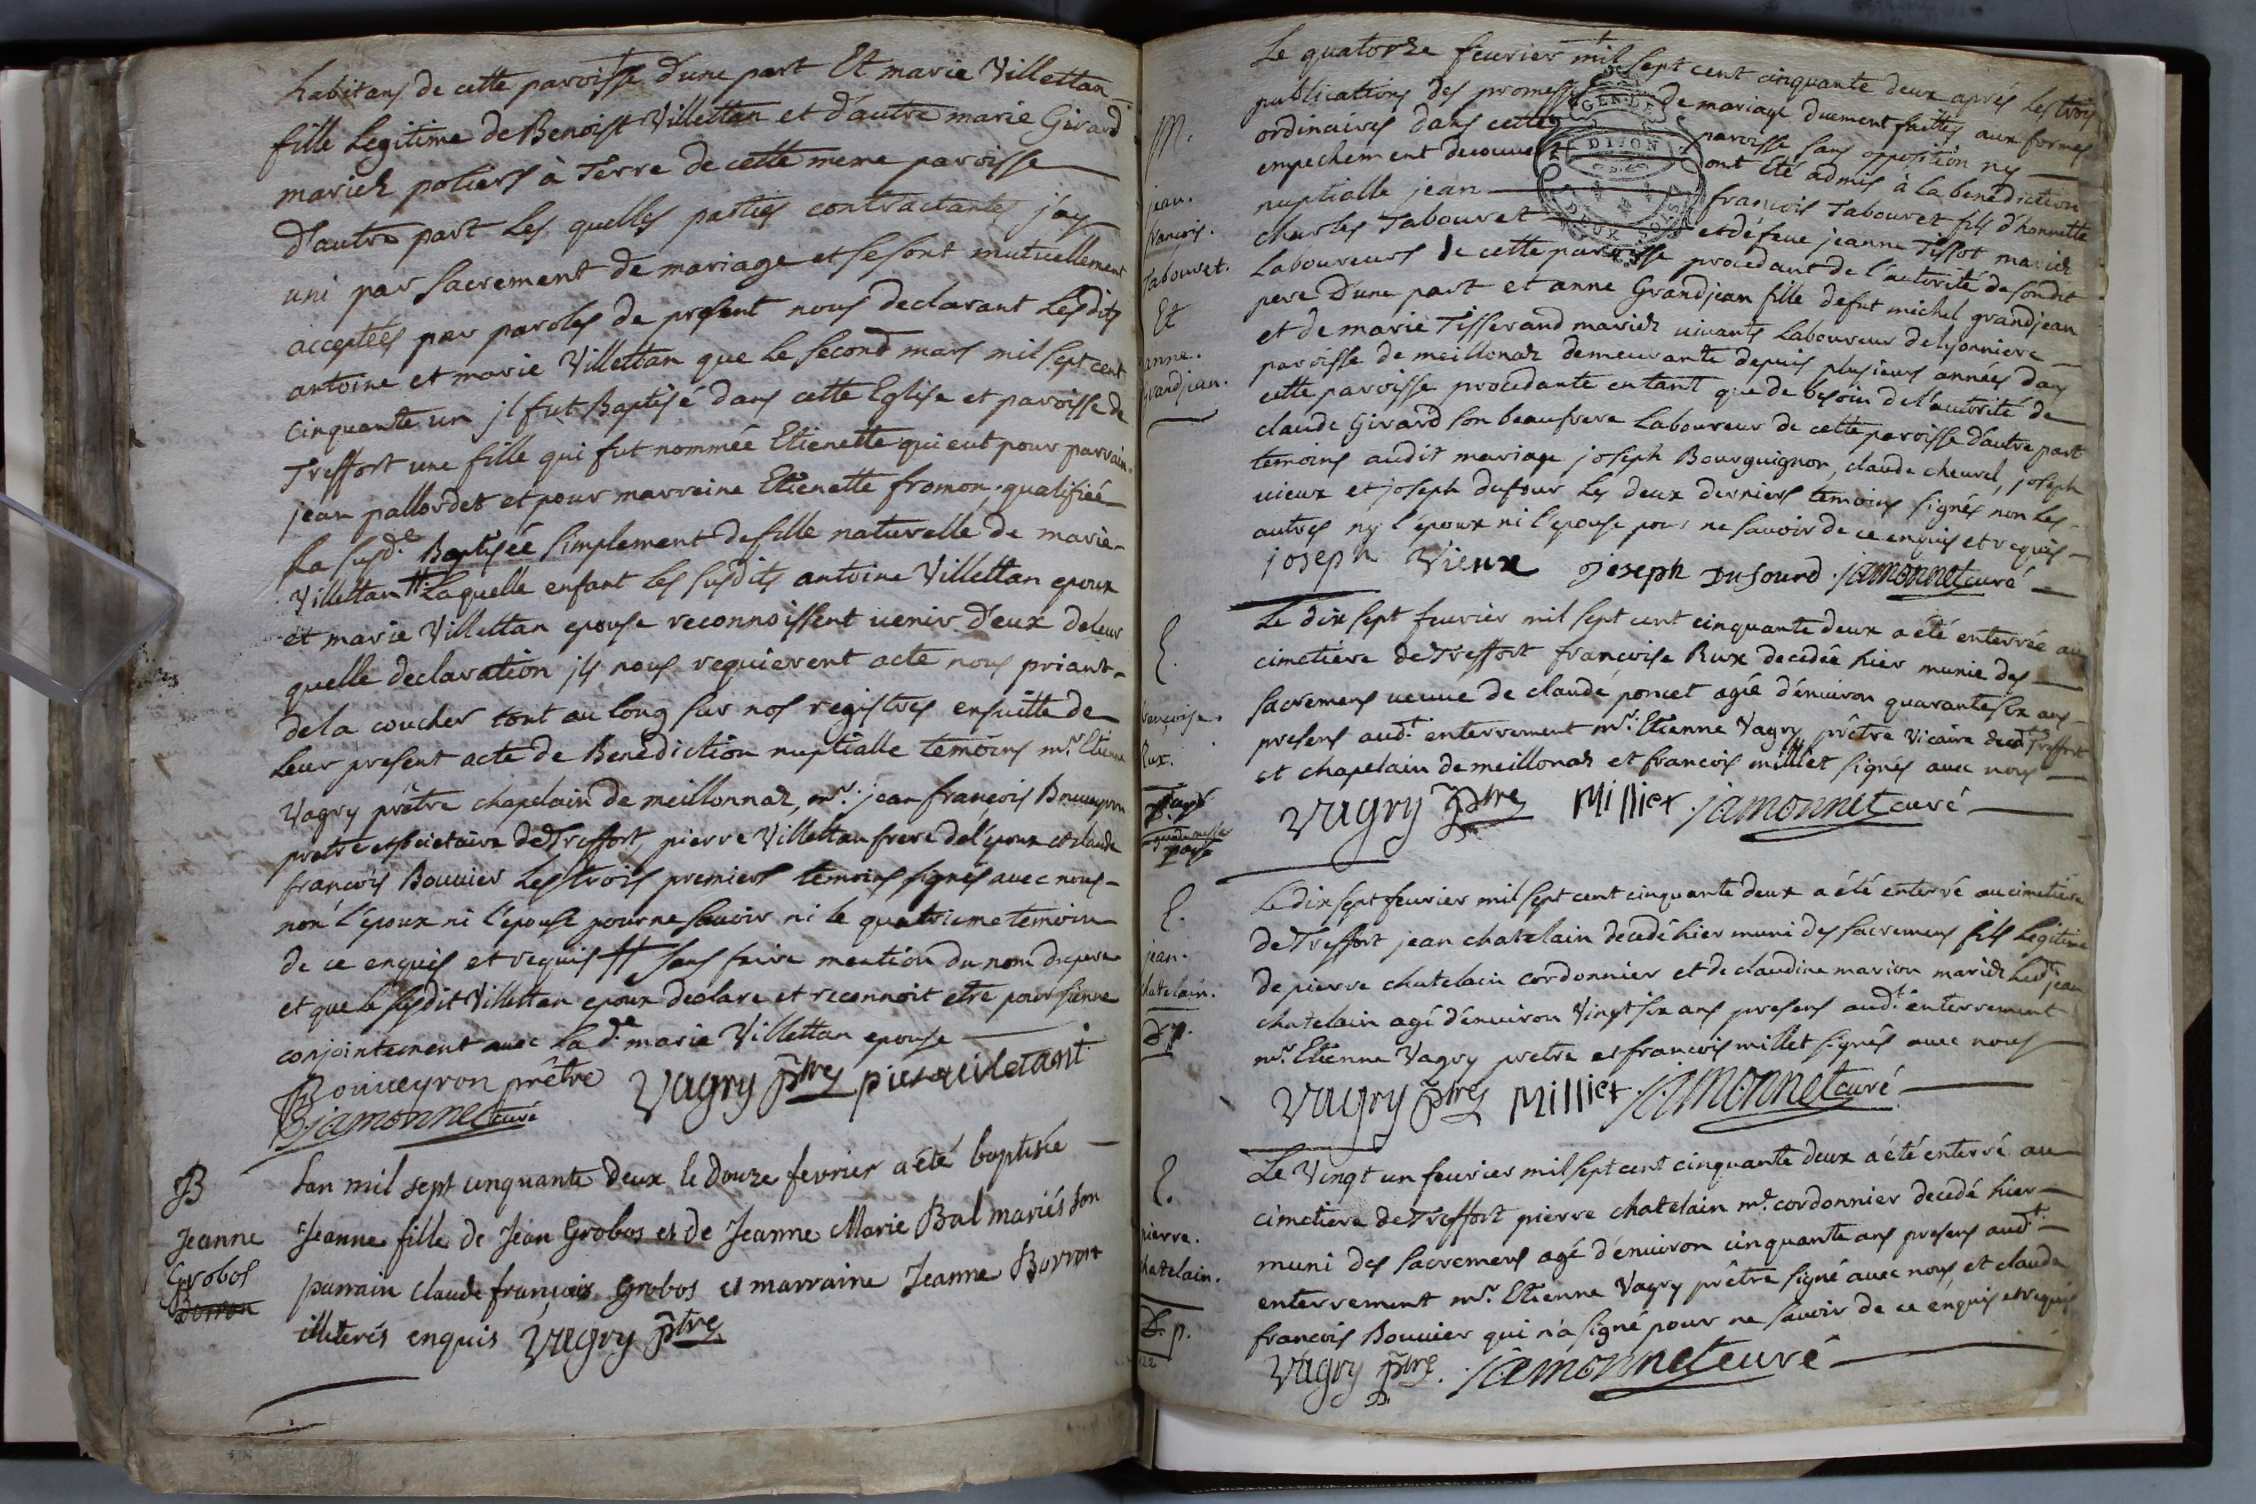 habitans de cette paroisse d'une part Et marie Villettan
fille Legitime de Benoist Villettan et d'autre marie Girard
mariez potiers à Terre de cette meme paroisse
d'autre part Les quelles parties contractantes j'ay
uni par Sacrement de mariage et se sont mutuellement
acceptées par paroles de present nous declarant Lesdits
antoine et marie Villettan que Le Second mars mil sept cent
cinquante un jl fut Baptisé dans cette Eglise et paroisse de
Treffort une fille qui fut nommée Etienette qui eut pour parrain
jean pallordet et pour marreine Etienette fromon qualifiée
La susd.e Baptisée simplement de fille naturelle de marie
Villettan # Laquelle enfant Les susdits antoine Villettan epoux
et marie Villettan epouse reconnoissent venir d'eux de leur
quelle declaration jls nous requierent acte nous priant
de la coucher tout au long sur nos registres ensuitte de
Leur present acte de Benediction nuptialle temoins mr. Etienne
Vagry prêtre chapelain de meillonnaz, mr. jean françois Bouveyron
pretre et societaire de Treffort, pierre Villettan frere de l'epoux et claude
françois Bouvier Les trois premiers temoins signés avec nous
non l'epoux ni l'epouse pour ne savoir ni le quatrieme temoin
de ce enquis et requis # sans faire mention du nom du pere
et que le susdit Villettan epoux declare et reconnoit etre pour sienne
conjointement avec la d.e marie Villettan epouse
Bouveyron prêtre Vagry ptre pierre viletant
jamonnet curé
B
Jeanne
Grobos
Borron
Lan mil sept cinquante deux le douze fevrier a été baptisée
Jeanne fille de Jean Grobos et de Jeanne Marie Bal mariés son
parrain claude françois Grobos et marraine Jeanne Borron
illiterés enquis Vagry ptre
M.
jean.
francois.
Tabouret.
Et
anne.
Grandjean.
Le quatorze feurier mil sept cent cinquante deux aprés Les trois
publications des promesses de mariage duement faittes aux formes
ordinaires dans cette paroisse sans opposition ny
empechement decouvert ont été admis à la benediction
nuptialle jean francois Tabouret fils d'honnette
charles Tabouret et de feue jeanne Tissot mariez
Laboureurs de cette paroisse procedant de l'autorité de son dit
pere d'une part et anne Grandjean fille de fut michel grandjean
et de marie Tisserand mariez vivants Laboureur de lyonniere
paroisse de meillonaz demeurante depuis plusieurs années dans
cette paroisse procedante en tant que de besoin de l'autorité de
claude Girard son beaufrere Laboureur de cette paroisse d'autre part
temoins audit mariage joseph Bourguignon, claude cheurel, joseph
vieux et joseph dufour Les deux derniers temoins signés non Les
autres ny l'epoux ni l'epouse pour ne savoir de ce enquis et requis
joseph Vieux joseph Dufourd jamonnet curé
E.
francoise.
Rux.
Le dix sept feurier mil sept cent cinquante deux a été enterrée au
cimetiere de Treffort francoise Rux decedée hier munie des
sacremens veuve de claude poncet agée d'environ quarante six ans
presens aud.t enterrement mr. Etienne Vagry prêtre vicaire dud.t Treffort
et chapelain de meillonaz et francois milliet signés avec nous
Vagry ptre Milliet jamonnet curé
E.
jean.
chatelain.
d. p.
Le dix sept feurier mil sept cent cinquante deux a été enterré au cimetiere
de Treffort jean chatelain decedé hier muni des sacremens fils Legitime
de pierre chatelain cordonnier et de claudine marion mariez Led.t jean
chatelain agé d'environ vingt six ans presens aud.t enterrement
mr. Etienne Vagry pretre et francois millet signés avec nous
Vagry ptre Milliet jamonnet curé
E.
pierre.
chatelain.
d. p.
Le Vingt un feurier mil sept cent cinquante deux a été enterré au
cimetiere de Treffort pierre chatelain m.e cordonnier decedé hier
muni des sacremens agé d'environ cinquante ans presens aud.t
enterrement mr. Etienne Vagry prêtre signé avec nous et claude
francois Bouvier qui n'a signé pour ne savoir de ce enquis et requis
Vagry ptre. jamonnet curé